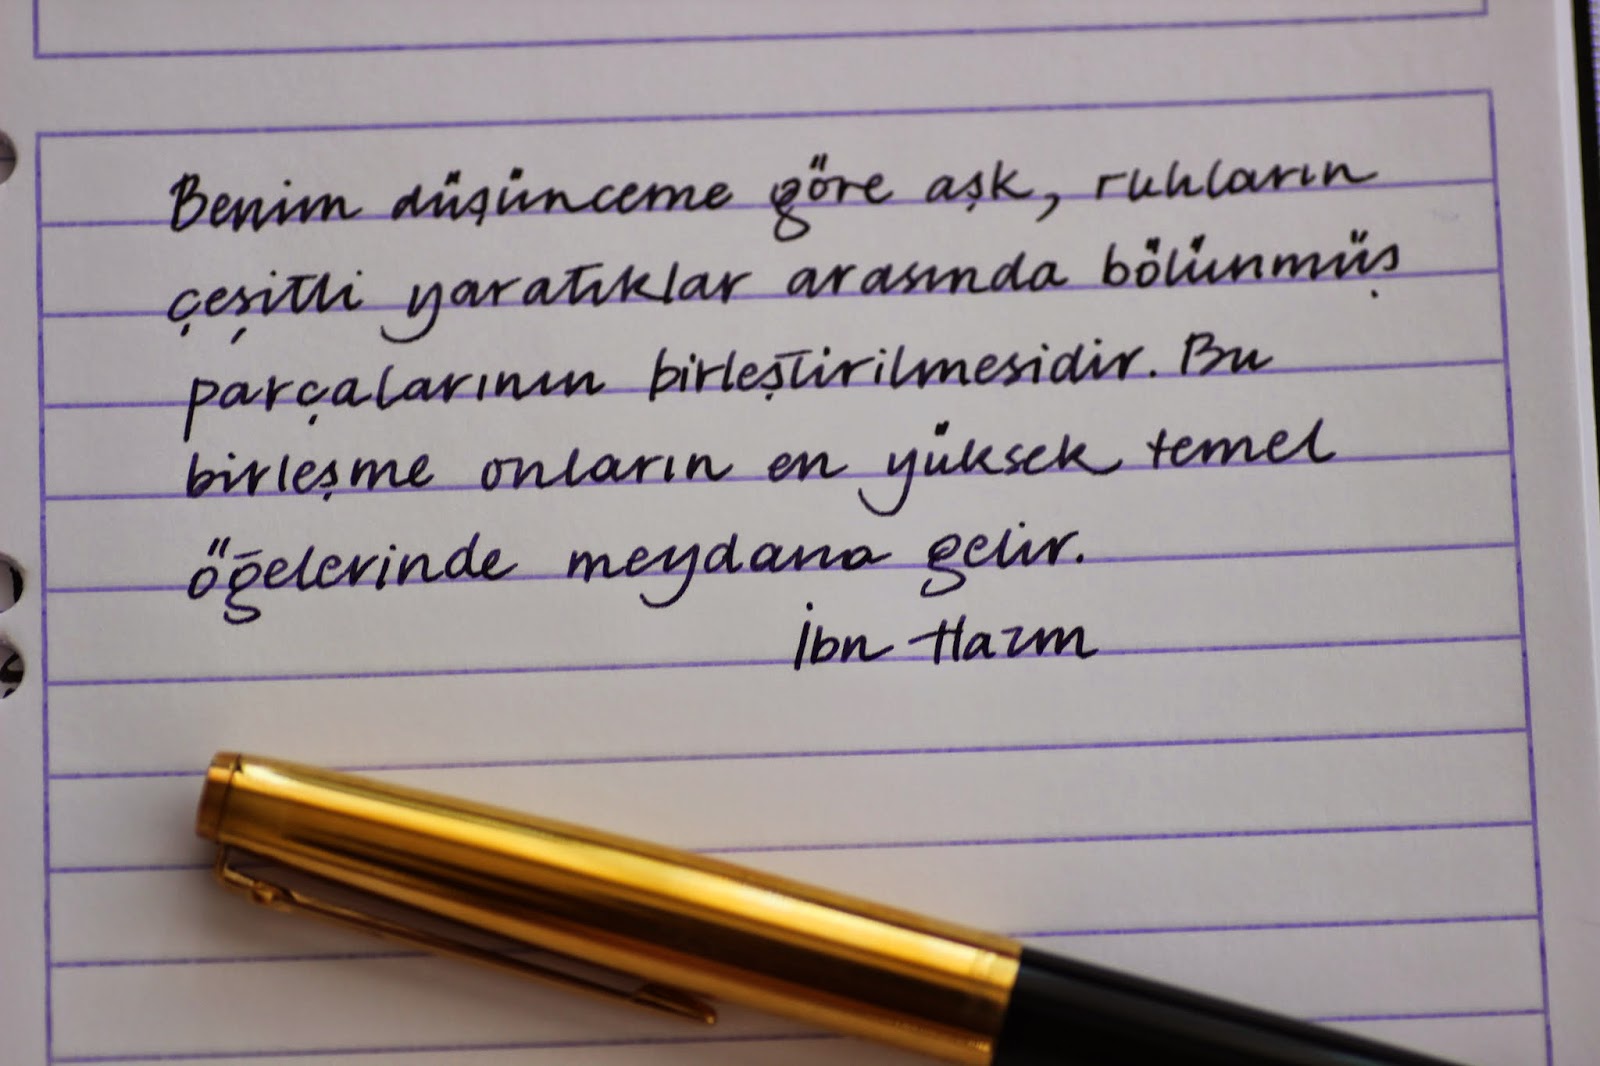 Benim düşünceme göre aşk, ruhların
çeşitli yaratıklar arasında bölünmüş
parçalarının birleştirilmesidir. Bu
birleşme onların en yüksek temel
öğelerinde meydana gelir.
İbn Hazm